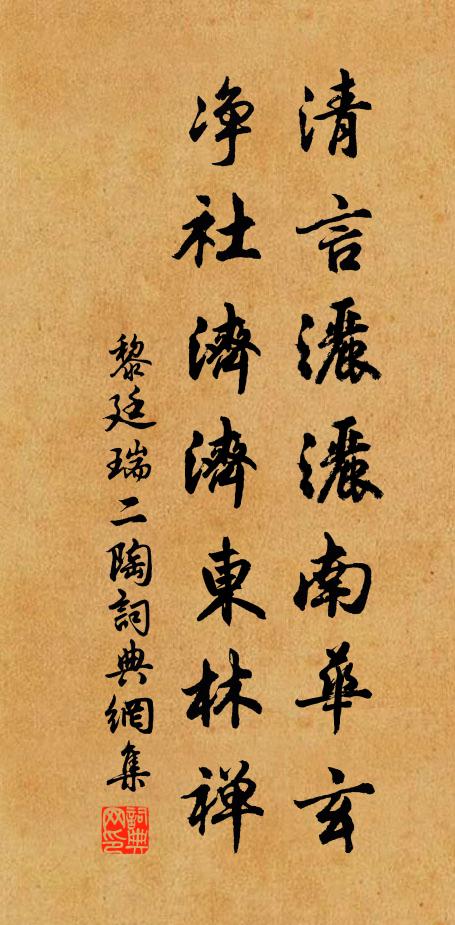 清言灑灑南華玄
淨社濟濟東林禅
黎廷瑞二陶詞典網集
詞典网印